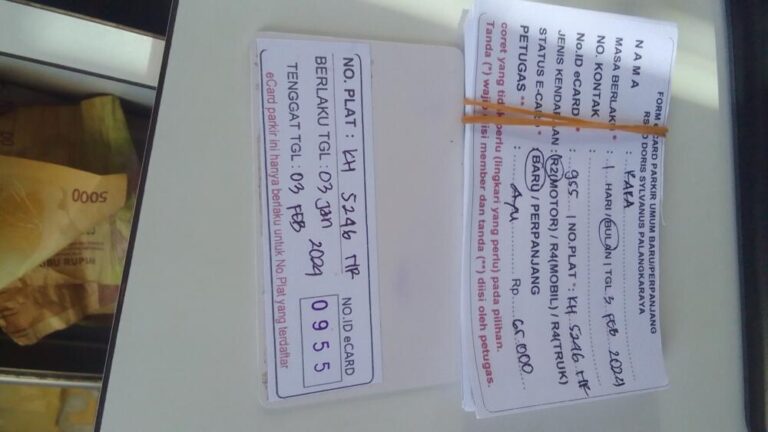 FORM eCARD PARKIR UMUM BARU/PERPANJANG
RSUD DORIS SYLVANUS PALANGKARAYA
NAMA : KAKA
MASA BERLAKU * : 1 HARI / BULAN | TGL 3 FEB 2024
NO. KONTAK :
No.ID eCARD * : 955 | NO.PLAT *: KH 5246 HR
JENIS KENDARAAN : R2(MOTOR) / R4(MOBIL) / R4(TRUK)
STATUS E-CARD * : BARU / PERPANJANG
PETUGAS ** : Ayu Rp. 65.000
coret yang tidak perlu (lingkari yang perlu) pada pilihan.
Tanda (*) wajib diisi member dan tanda (**) diisi oleh petugas.
NO. PLAT : KH 5246 HR
BERLAKU TGL : 03 Jan 2024
TENGGAT TGL : 03 FEB
NO.ID eCARD
0955
eCard parkir ini hanya berlaku untuk No.Plat yang terdaftar
5000
RUPIAH